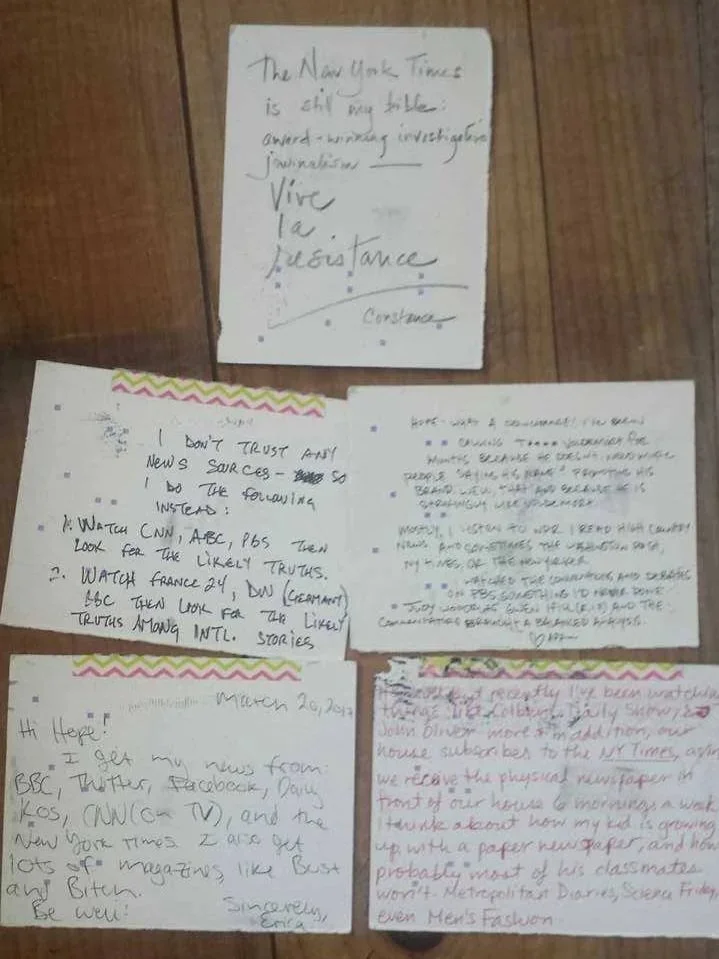 The New York Times
is still my bible:
award-winning investigative
journalism —
Vive
la
resistance
Constance
I DON'T TRUST ANY
NEWS SOURCES - SO
I DO THE FOLLOWING
INSTEAD:
1. WATCH CNN, ABC, PBS THEN
LOOK FOR THE LIKELY TRUTHS.
2. WATCH FRANCE 24, DW (GERMANY)
BBC THEN LOOK FOR THE LIKELY
TRUTHS AMONG INTL. STORIES
HOPE - WHAT A I'VE BEEN
CALLING VOLDEMORT FOR
MONTHS BECAUSE HE DOESN'T
PEOPLE "SAYING HIS NAME" PROMOTING HIS
BRAND. THAT AND BECAUSE HE IS
VOLDEMORT.
MOSTLY, I LISTEN TO NPR. I READ HIGH COUNTRY
NEWS AND SOMETIMES THE WASHINGTON POST,
NY TIMES, OR THE NEW YORKER.
WATCHED THE CONVENTIONS AND DEBATES
ON PBS SOMETHING I'D NEVER DONE
JUDY GWEN IFILL (R.I.P) AND THE
COMMENTATORS BROUGHT A BALANCED ANALYSIS.
March 20, 2017
Hi Hope!
I get my news from:
BBC, Twitter, Facebook, Daily
Kos, CNN (on TV), and the
New York Times. I also get
lots of magazines, like Bust
and Bitch.
Be well!
Sincerely,
Erica
recently I've been watching
things like Colbert, Daily Show, &
John Oliver more. In addition, our
house subscribes to the NY Times, as in
we receive the physical newspaper in
front of our house 6 mornings a week.
I think about how my kid is growing
up with a paper newspaper, and how
probably most of his classmates
won't. Metropolitan Diaries, Science Friday,
even Men's Fashion.